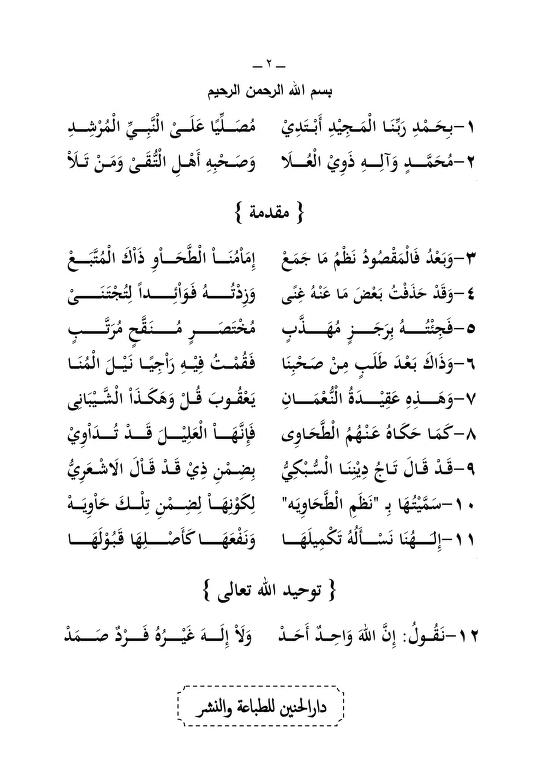 ــ ٢ ــ
بسم الله الرحمن الرحيم
١-بِحَمْدِ رَبِّنَا الْمَجِيْدِ أَبْتَدِيْ مُصَلِّيًا عَلَىْ النَّبِيِّ الْمُرْشِدِ
٢-مُحَمَّدٍ وَآلِهِ ذَوِيْ الْعُلَا وَصَحْبِهِ أَهْلِ التُّقَىْ وَمَنْ تَلَاْ
{ مقدمة }
٣-وَبَعْدُ فَالْمَقْصُودُ نَظْمُ مَا جَمَعْ إِمَاْمُنَاْ الْطَّحَاْوِ ذَاْكَ الْمُتَّبَعْ
٤-وَقَدْ حَذَفْتُ بَعْضَ مَا عَنْهُ غِنًى وَزِدْتُهُ فَوَاْئِداً لِتُجْتَنَىْ
٥-فَجِئْتُهُ بِرَجَزٍ مُهَذَّبٍ مُخْتَصَرٍ مُنَقَّحٍ مُرَتَّبٍ
٦-وَذَاكَ بَعْدَ طَلَبٍ مِنْ صَحْبِنَا فَقُمْتُ فِيْهِ رَاْجِيًا نَيْلَ الْمُنَا
٧-وَهَذِهِ عَقِيْدَةُ الْنُّعْمَانِ يَعْقُوبَ قُلْ وَهَكَذَاْ الشَّيْبَانِى
٨-كَمَا حَكَاهُ عَنْهُمُ الْطَّحَاوِى فَإِنَّهَاْ الْعَلِيْلَ قَدْ تُدَاْوِيْ
٩-قَدْ قَالَ تَاجُ دِيْنِنَا الْسُّبْكِيُّ بِضِمْنِ ذِيْ قَدْ قَاْلَ الْاشْعَرِيُّ
١٠-سَمَّيْتُهَا بِـ "نَظَمِ الْطَّحَاوِيَه" لِكَوْنِهَاْ لِضِمْنِ تِلْكَ حَاْوِيَهْ
١١-إِلَهُنَا نَسْأَلُهُ تَكْمِيلَهَا وَنَفْعَهَا كَأَصْلِهَا قَبُوْلَهَا
{ توحيد الله تعالى }
١٢-نَقُولُ: إِنَّ اللهَ وَاحِدٌ أَحَدْ وَلَاْ إِلَهَ غَيْرُهُ فَرْدٌ صَمَدْ
دارالحنين للطباعة والنشر